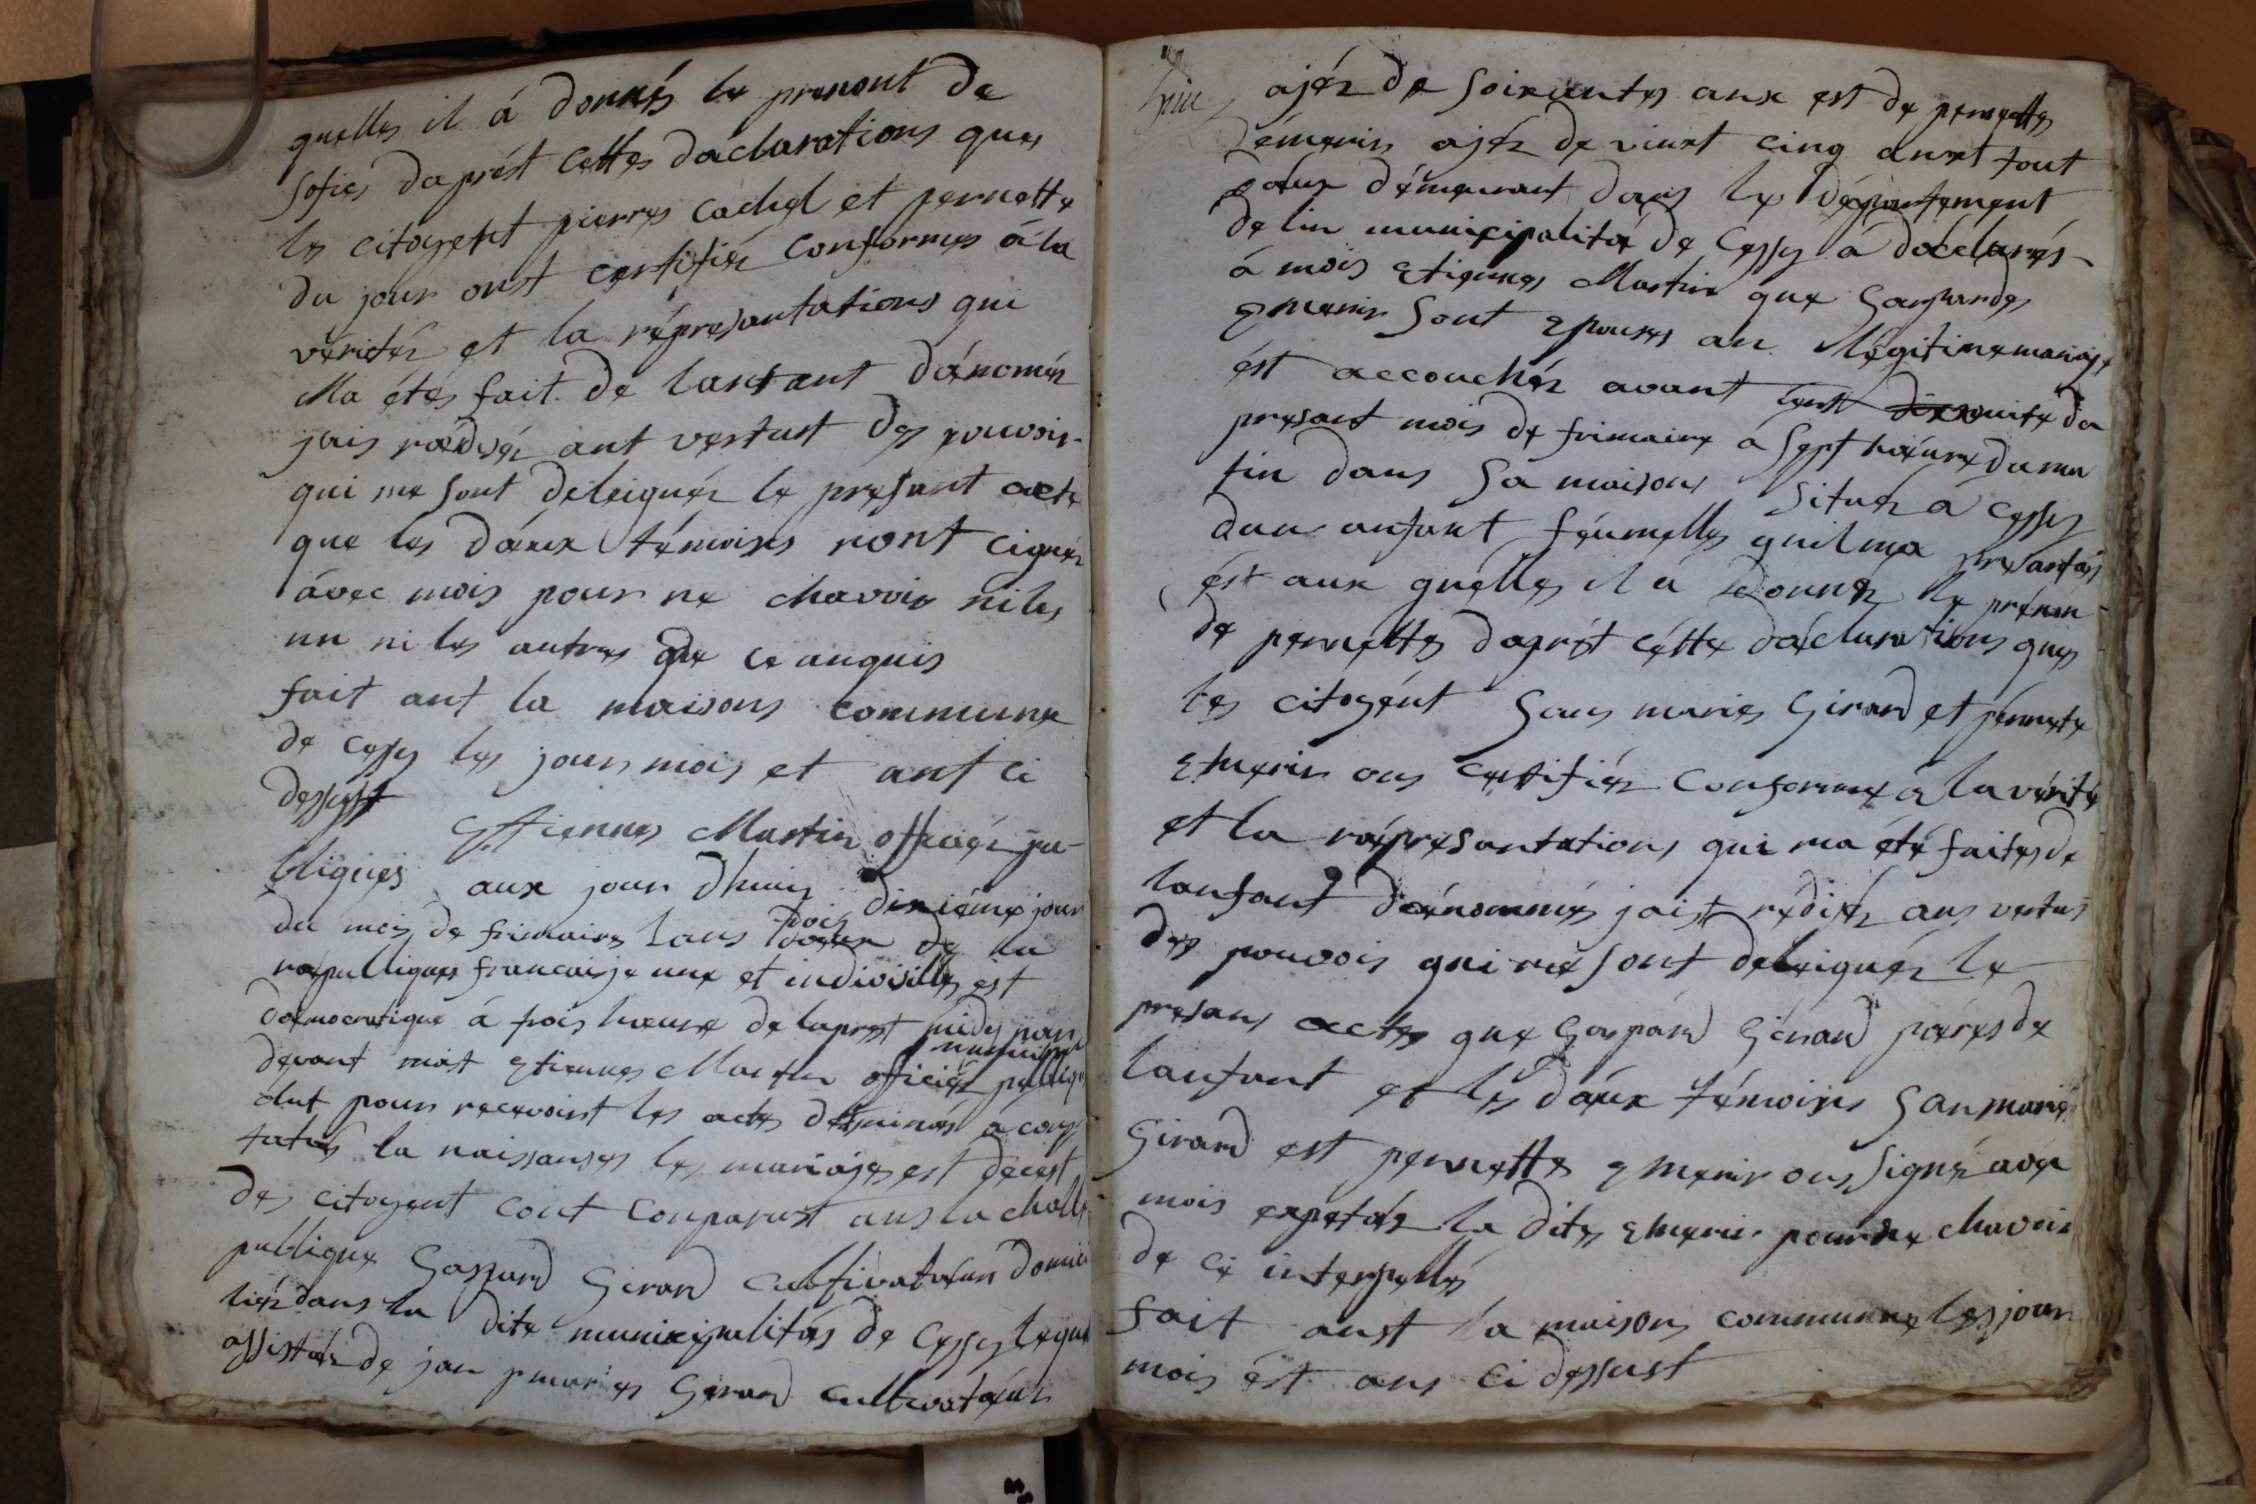 quelles il á donnés le prenont de
sofies daprést cettes daclarations ques
les citoyent pierres cachel et pernette
du jour onst certifiér conformes á la
veritér et la répresantations qui
Ma étes fait de lansant dánomér
jais rædigér ant vertust des pouvoir
qui me sont deleiguér le presant acte
que les dáeux témoins nont cignér
ávec mois pour ne chavoir ni les
un ni les autres de ce anquis
fait ant la maisons commune
de cessy les jour mois et ant ci
dessust
Ettiennes Martin officiér pu-
bliques aux jour dhuis dixiéme jour
du mois de frimaires lans trois de la
ræpubliques francaise une et indivisibles est
dæmocratique á trois hœure de laprest midy par
devant moit Etiennes Martin officiér municipal publique
élut pour recevoirt les actes destinés á cons
tatés la naissanses les mariajes est décest
des citoyent cont comparust ans la challe
publique Gaspard Girard cultivatéur domici
liér dans la dite municipalités de Cessy lequel
assistér de jan maries Girard cultivatéur
ajér de soixantes ans est de pernettes
Émerin ajér de vint cinq anst tout
dæux démeurant dans le département
de lin municipalité de Cessy á décclarés
á mois Etiennes Martin que
Emerin sont Epouses an légitime mariaje
ést accouchér avant du
presant mois de frimaire á sept hœure du ma
tin dans sa maisons situér á cessy
dun anfant féumelles quil ma presantés
ést aux quélles il á donnér le prénon
de pernettes daprést cétte dáéclarations ques
les citoyént Jans maries Girard et pérnete
Emerin ons certifiér conforme á la vérité
et la ráépresantations qui ma été faites de
lanfant dénommés jaist rédijér ans vertus
des pouvois qui me sont deleiguér le
presans actes que Gaspárd Girard pæres de
lanfant et les dáéux témoins Jan maries
Girard est pernettes Emerin ons signér avec
mois expetér la dites Emerin pour ne chavoir
de ce interpellés
fait anst la maisons commune les jour
mois ést ans ci dessust